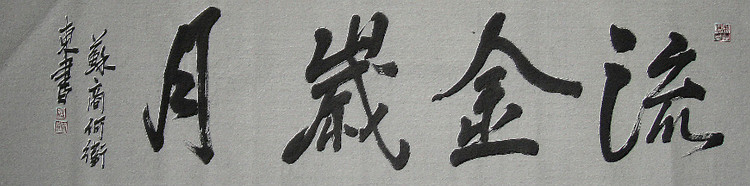 流金歲月
蘇商何衛
東書